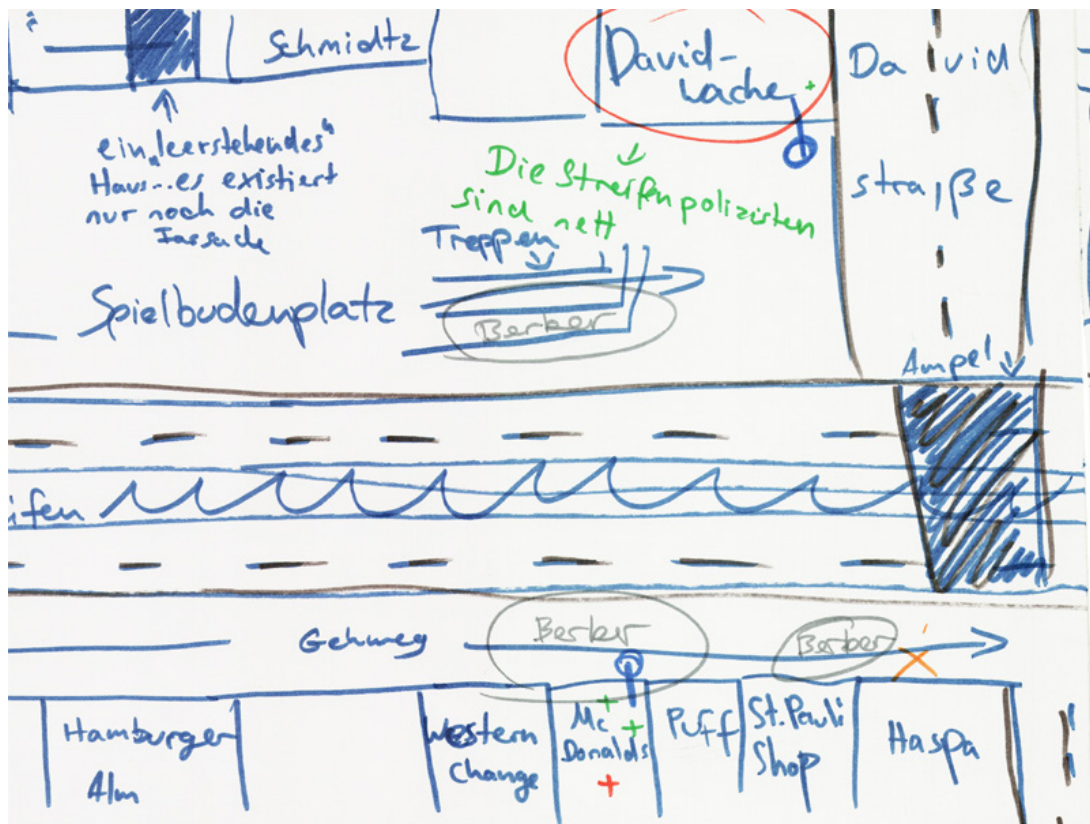 Schmidtz
David-
wache
David
straße
ein „leerstehendes“
Haus... es existiert
nur noch die
Fassade
Die Streifenpolizisten
sind nett
Treppen
Spielbudenplatz
Berber
Ampel
ifen
Gehweg
Berber
Berber
Hamburger
Alm
Western
Change
Mc
Donalds
Puff
St. Pauli
Shop
Haspa